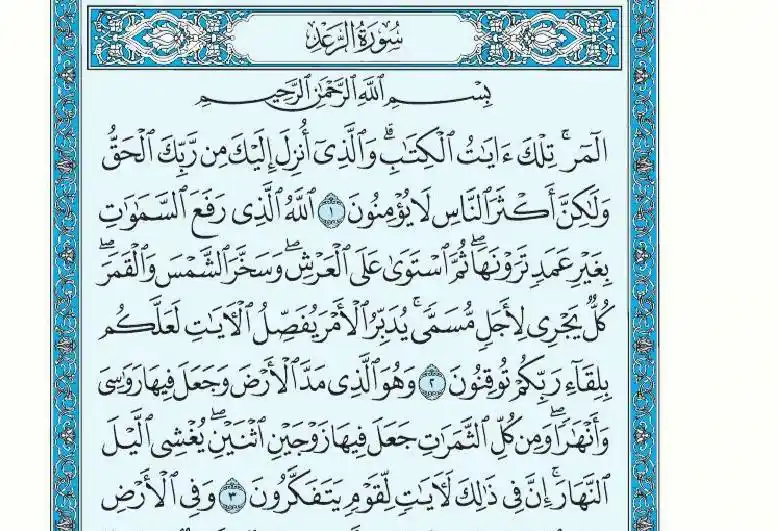 سُورَةُ الرَّعْدِ
بِسْمِ ٱللَّهِ ٱلرَّحْمَٰنِ ٱلرَّحِيمِ
الٓمٓرۚ تِلْكَ ءَايَٰتُ ٱلْكِتَٰبِۗ وَٱلَّذِىٓ أُنزِلَ إِلَيْكَ مِن رَّبِّكَ ٱلْحَقُّ
وَلَٰكِنَّ أَكْثَرَ ٱلنَّاسِ لَا يُؤْمِنُونَ ١ ٱللَّهُ ٱلَّذِى رَفَعَ ٱلسَّمَٰوَٰتِ
بِغَيْرِ عَمَدٍ تَرَوْنَهَاۖ ثُمَّ ٱسْتَوَىٰ عَلَى ٱلْعَرْشِۖ وَسَخَّرَ ٱلشَّمْسَ وَٱلْقَمَرَۖ
كُلٌّ يَجْرِى لِأَجَلٍ مُّسَمًّىۚ يُدَبِّرُ ٱلْأَمْرَ يُفَصِّلُ ٱلْأٓيَٰتِ لَعَلَّكُم
بِلِقَآءِ رَبِّكُمْ تُوقِنُونَ ٢ وَهُوَ ٱلَّذِى مَدَّ ٱلْأَرْضَ وَجَعَلَ فِيهَا رَوَٰسِىَ
وَأَنْهَٰرًاۖ وَمِن كُلِّ ٱلثَّمَرَٰتِ جَعَلَ فِيهَا زَوْجَيْنِ ٱثْنَيْنِۖ يُغْشِى ٱلَّيْلَ
ٱلنَّهَارَۚ إِنَّ فِى ذَٰلِكَ لَأٓيَٰتٍ لِّقَوْمٍ يَتَفَكَّرُونَ ٣ وَفِى ٱلْأَرْضِ